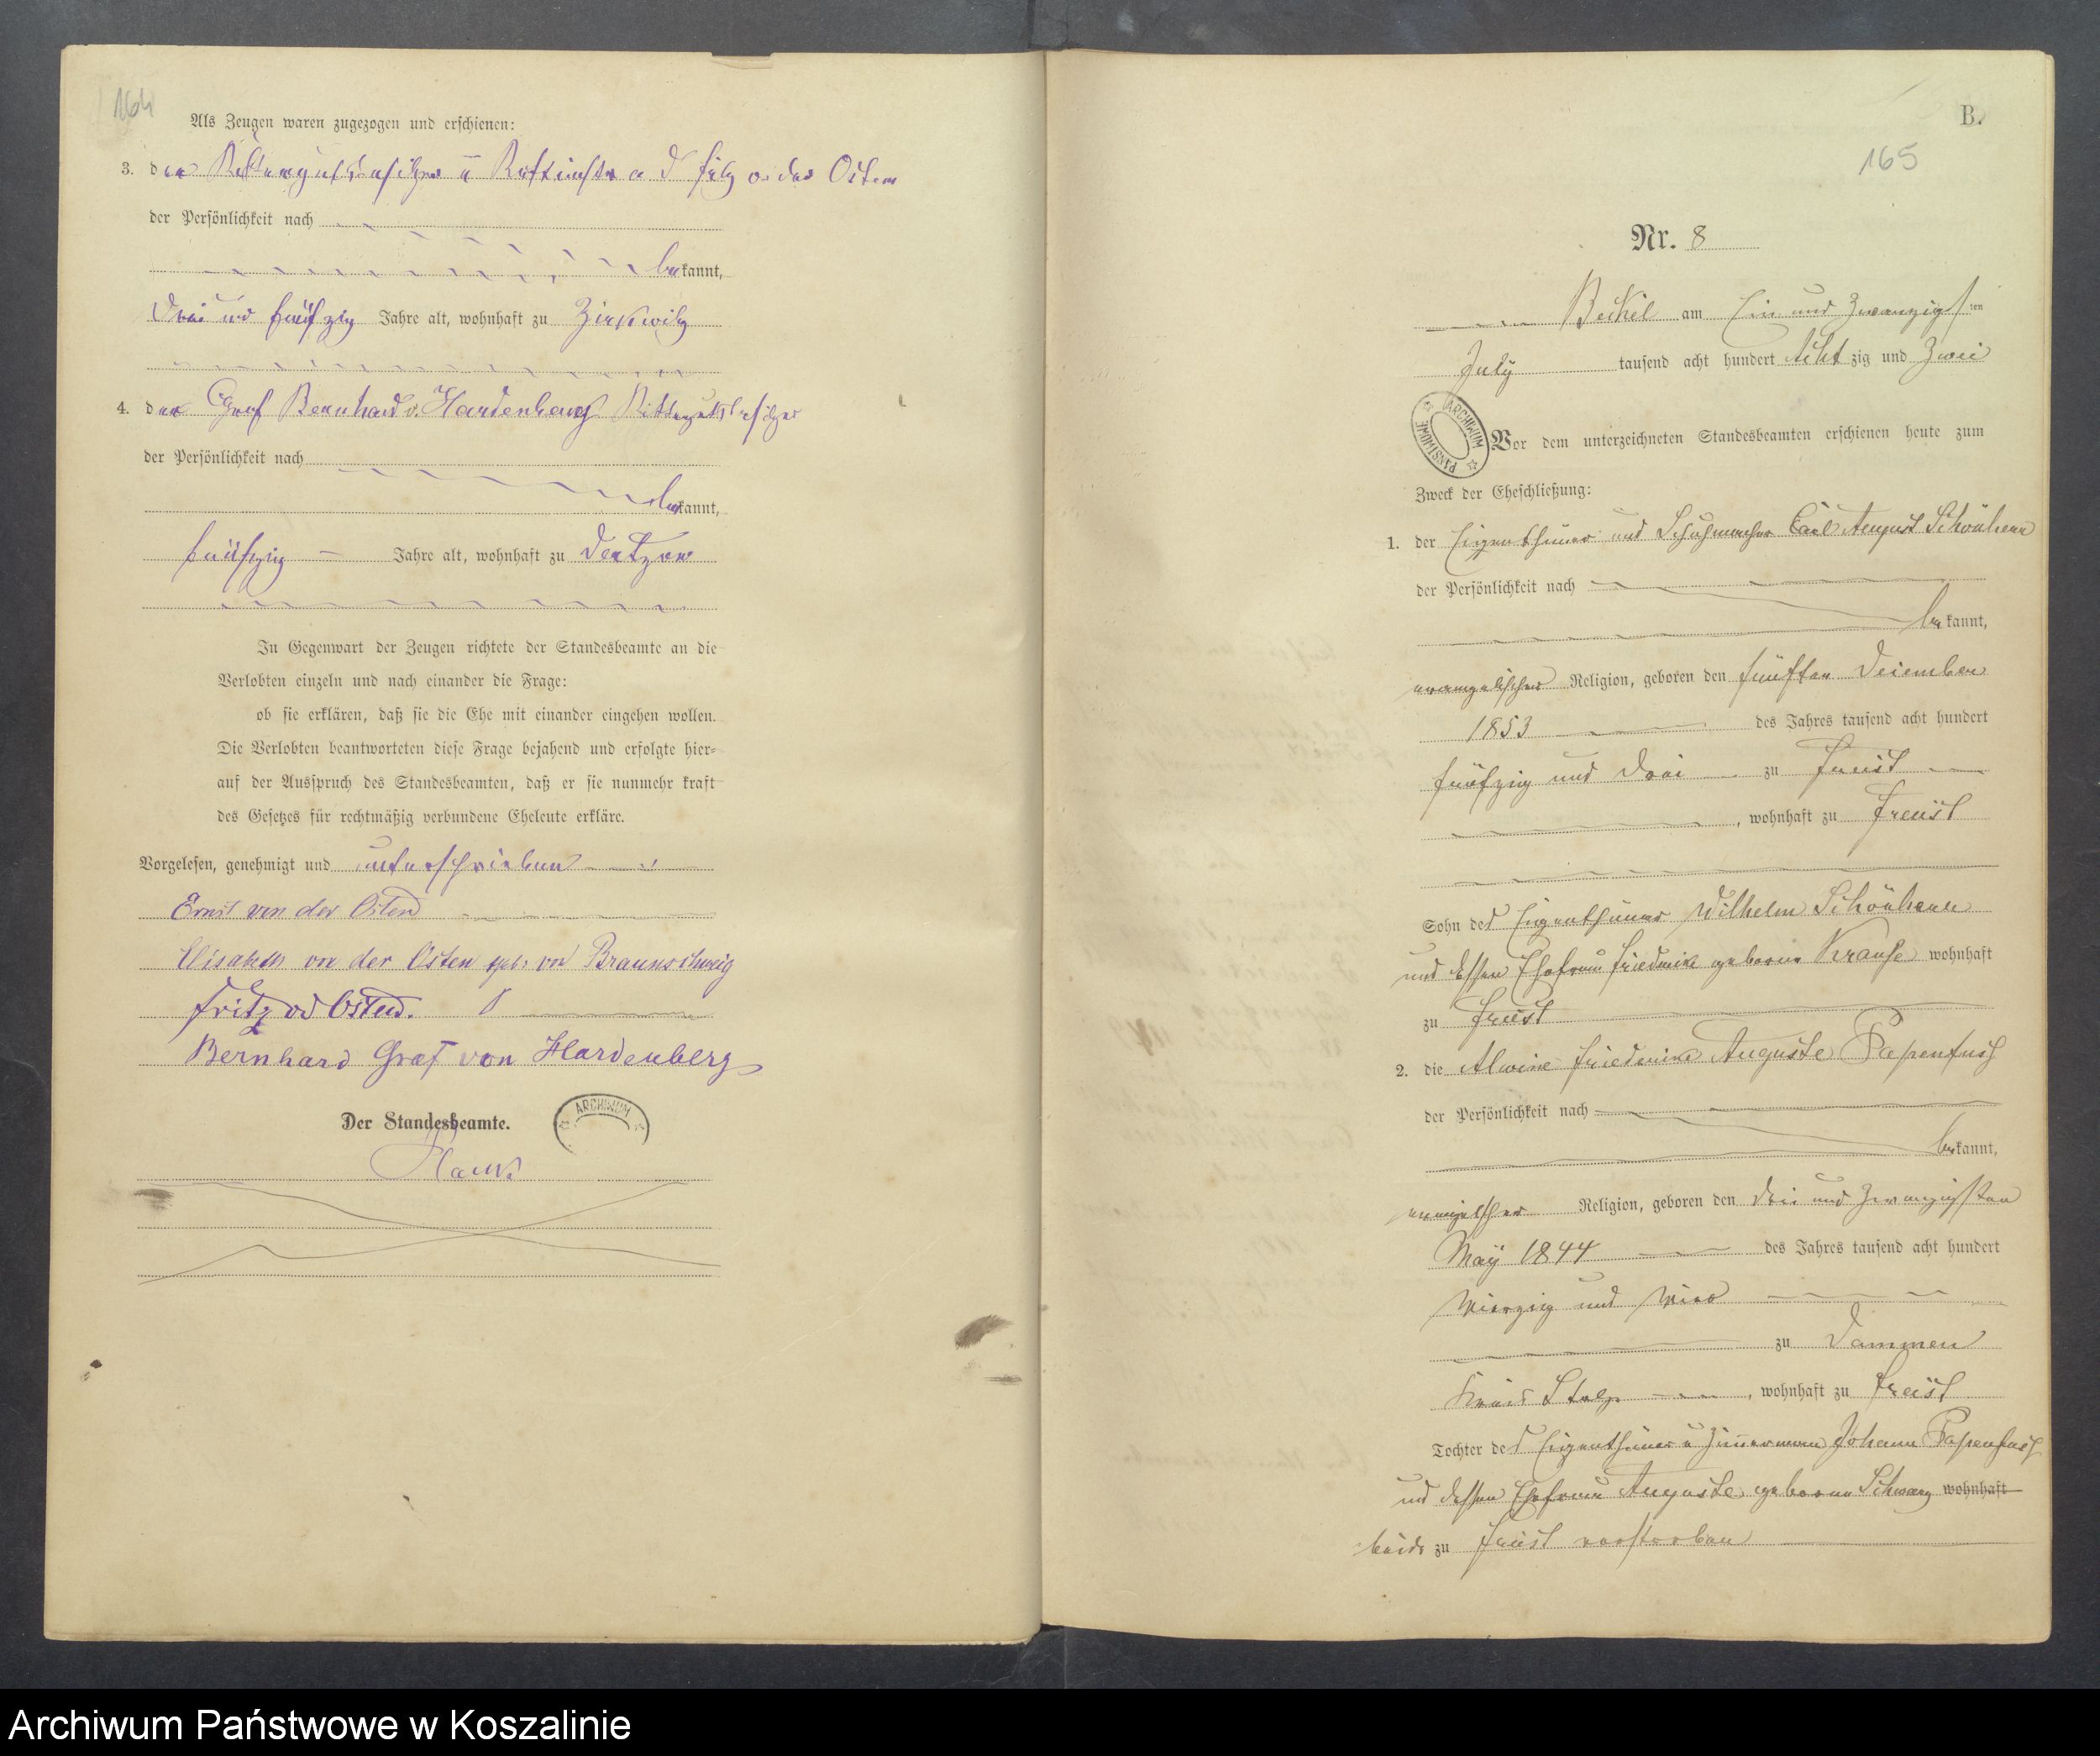 164
Als Zeugen waren zugezogen und erschienen:
3. der Rittergutsbesitzer u Rittmstr a D Fritz v. der Osten
der Persönlichkeit nach
bekannt,
drei und fünfzig Jahre alt, wohnhaft zu Zirkwitz
4. der Graf Bernhard v. Hardenberg Rittergutsbesitzer
der Persönlichkeit nach
bekannt,
fünfzig Jahre alt, wohnhaft zu
In Gegenwart der Zeugen richtete der Standesbeamte an die
Verlobten einzeln und nach einander die Frage:
ob sie erklären, daß sie die Ehe mit einander eingehen wollen.
Die Verlobten beantworteten diese Frage bejahend und erfolgte hier=
auf der Ausspruch des Standesbeamten, daß er sie nunmehr kraft
des Gesetzes für rechtmäßig verbundene Eheleute erkläre.
Vorgelesen, genehmigt und unterschrieben
Ernst von der Osten
Elisabeth von der Osten geb. von Braunschweig
Fritz vd Osten.
Bernhard Graf von Hardenberg
Der Standesbeamte.
ARCHIWUM
B.
165
Nr. 8
Beckel am Ein und Zwanzigsten
July tausend acht hundert Achtzig und Zwei
ARCHIWUM PAŃSTWOWE
Vor dem unterzeichneten Standesbeamten erschienen heute zum
Zweck der Eheschließung:
1. der Eigenthümer und Schuhmacher Carl August Schönherr
der Persönlichkeit nach
bekannt,
evangelischer Religion, geboren den fünften Dezember
1853 des Jahres tausend acht hundert
fünfzig und drei zu Freist
, wohnhaft zu Freist
Sohn des Eigenthümer Wilhelm Schönherr
und dessen Ehefrau Friederike geborne Krause wohnhaft
zu Freist
2. die Alwine Friederike Auguste Papenfuß
der Persönlichkeit nach
bekannt,
evangelischer Religion, geboren den drei und zwanzigsten
May 1844 des Jahres tausend acht hundert
vierzig und vier
zu Dammen
Kreis Stolp , wohnhaft zu Freist
Tochter des Eigenthümer u Zimmermann Johann Papenfuß
und dessen Ehefrau Auguste geborne Schwarz wohnhaft
beide zu Freist verstorben
Archiwum Państwowe w Koszalinie